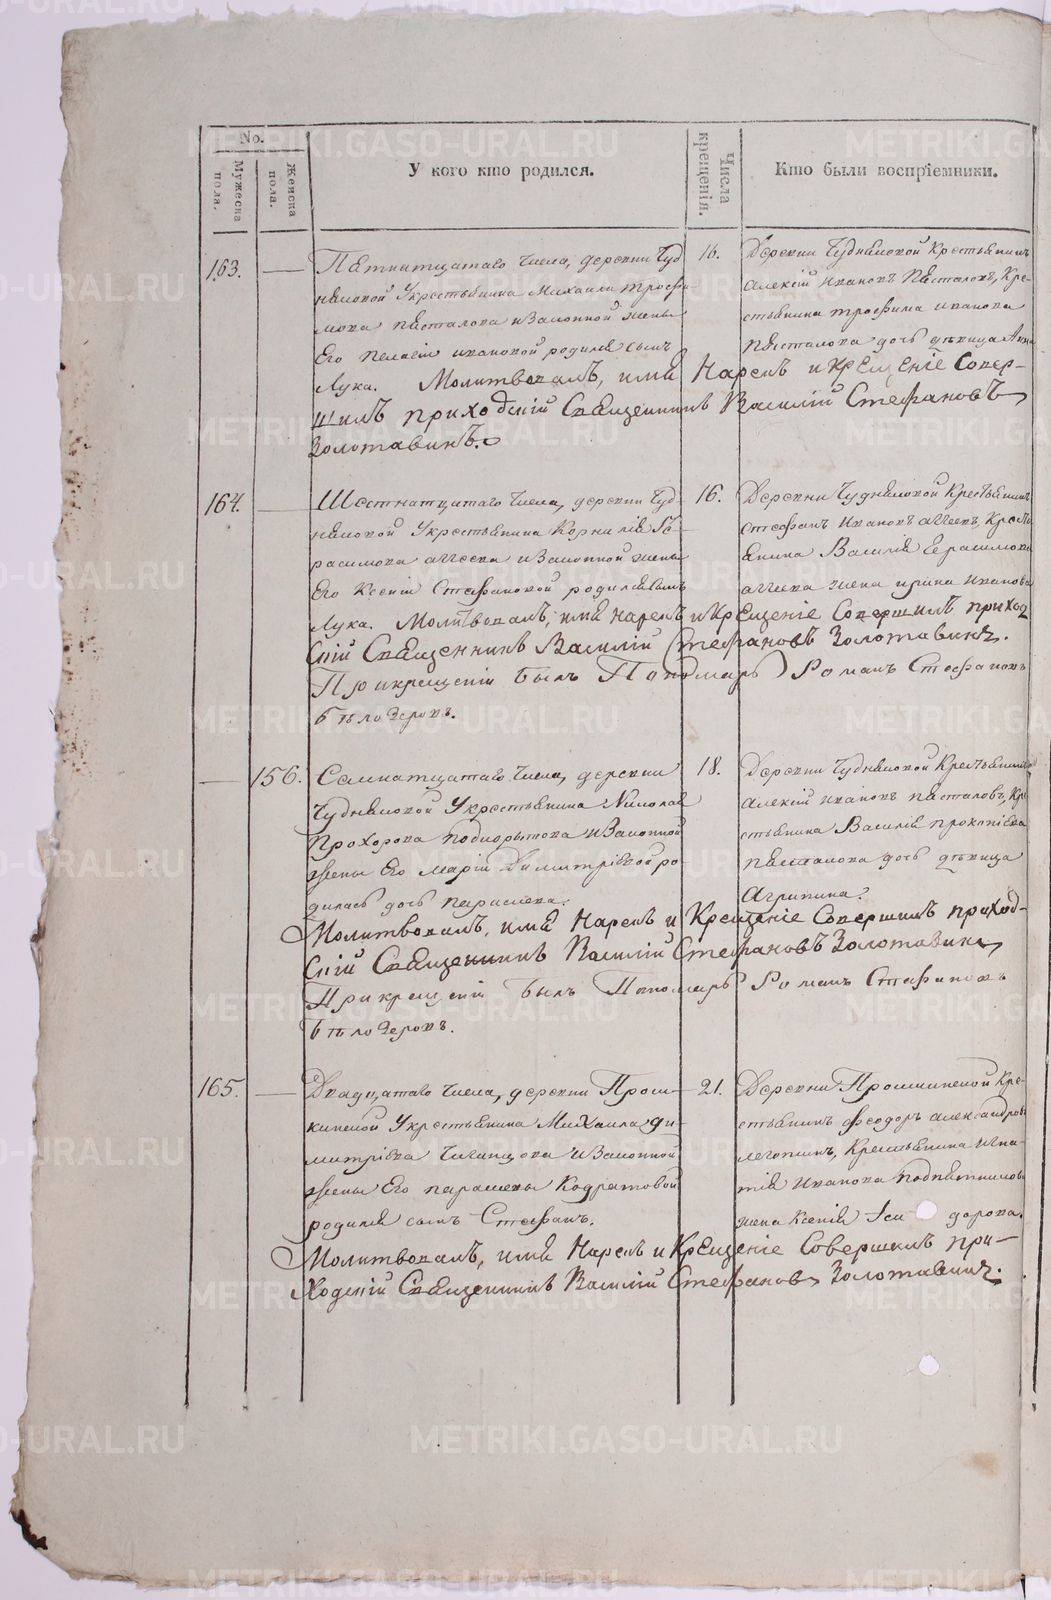 No.
Мужеска пола.
Женска пола.
У кого кто родился.
Числа крещенія.
Кто были воспріемники.
163.
Пятнатцатаго числа, деревни Чуд
няковой Укрестьянина Михаила трофи
мова пясталова изаконной жены
Его пелагіи ивановой родился сынъ
Лука. Молитвовалъ, имя Нарекъ и крещеніе Совер-
шилъ приходскій Священникъ Василій Стефановъ
Золотавинъ.
16.
Деревни Чудняковой Крестьянинъ
Алексій ивановъ Пясталовъ, Кре-
стьянина трофима иванова
пясталова дочь дѣвица Анна
164.
Шестнатцатаго числа, деревни Чуд-
няковой Укрестьянина Корнилія Ге-
расимова агѣева изаконной жены
Его Ксеніи Стефановой родился сынъ
Лука. Молитвовалъ, имя нарекъ и Крещеніе Совершилъ приход
скій Священникъ Василій Стефановъ Золотавинъ.
Прикрещеніи былъ Пономарь Романъ Стефановъ
бѣлозеровъ.
16.
Деревни Чудняковой Крестьянинъ
стефанъ ивановъ агѣевъ, Кресть
янина Василія Герасимова
агѣева жена ирина иванова
156.
Семнатцатаго числа, деревни
Чудняковой Укрестьянина Николая
Прохорова подкорытова изаконной
жены Его маріи Димитріевой ро-
дилась дочь параскева.
Молитвовалъ, имя Нарекъ и Крещеніе Совершилъ приход-
скій Священникъ Василій Стефановъ Золотавинъ
Прикрещеніи былъ Пономарь Романъ Стефановъ
бѣлозеровъ.
18.
Деревни Чудняковой Крестьянинъ
алексій ивановъ пясталовъ, Кре
стьянина Василія прокопіева
пясталова дочь дѣвица
Агрипина.
165.
Двадцатаго числа, деревни Прош-
киненой Укрестьянина Михаила ди-
митріева изаконной
жены Его параскевы Кодратовой
родился сынъ Стефанъ.
Молитвовалъ, имя Нарекъ и Крещеніе Совершилъ при-
ходскій Священникъ Василій Стефановъ Золотавинъ.
21.
Деревни Кре-
стьянинъ феодоръ александровъ
Крестьянина игна-
тія иванова
жена Ксенія Iси дорова.
METRIKI.GASO-URAL.RU